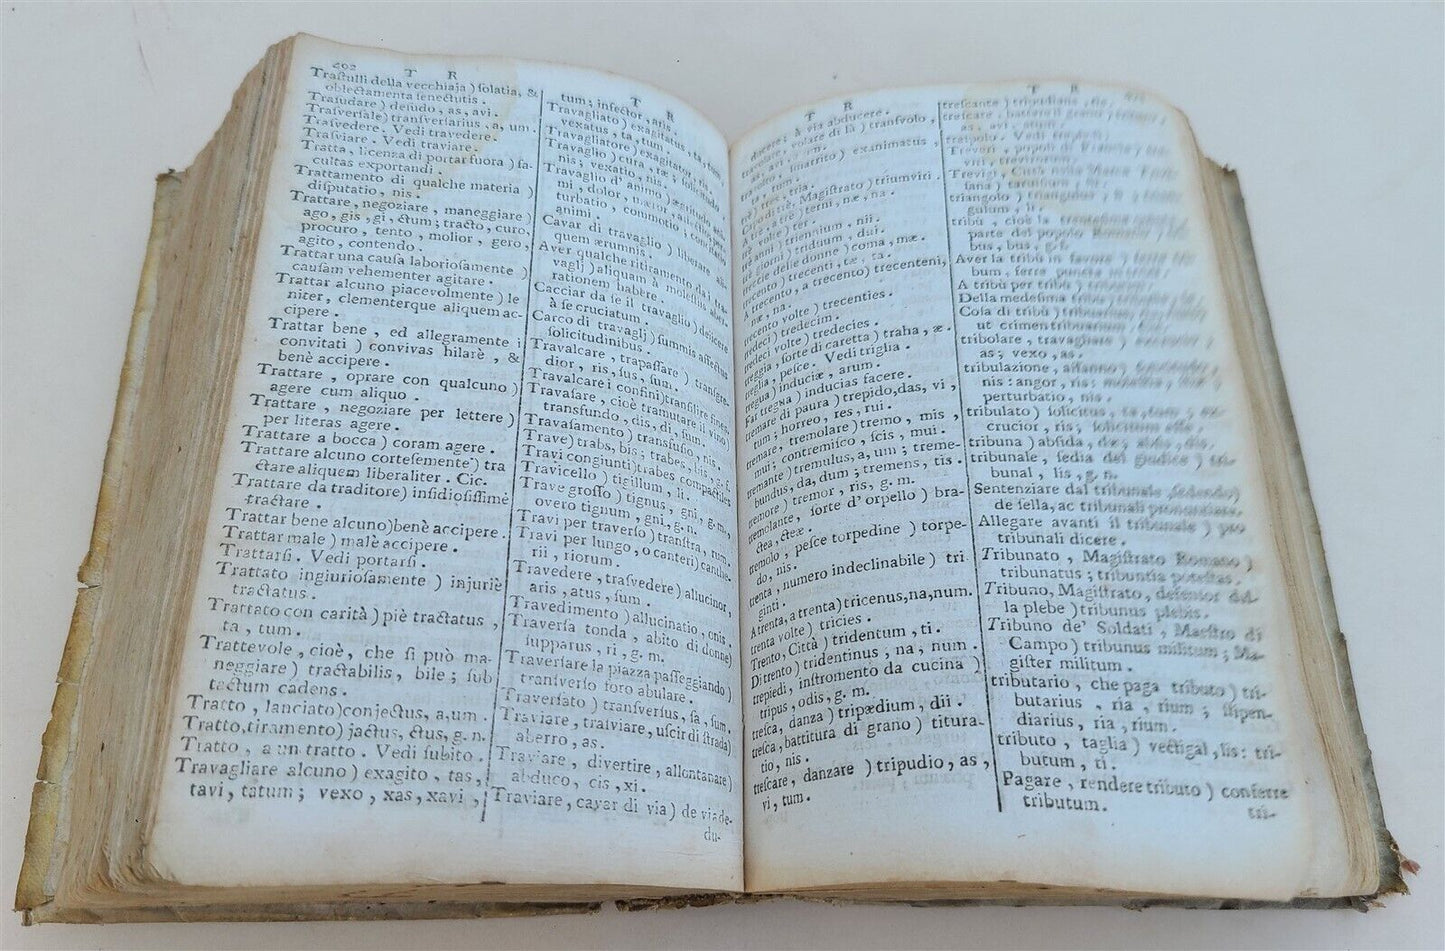 T R
Traſtulli della vecchiaja ) ſolatia, &
oblectamenta ſenectutis .
Traſudare ) deſudo, as, avi .
Traſverſale) tranſverſarius , a, um .
Traſvedere. Vedi travedere.
Traſviare . Vedi traviare .
Tratta , licenza di portar fuora ) fa-
cultas exportandi .
Trattamento di qualche materia )
diſputatio, nis .
Trattare, negoziare, maneggiare )
ago, gis , gi , ctum ; tracto, curo,
procuro , tento , molior , gero ,
agito , contendo .
Trattar una cauſa laborioſamente )
cauſam vehementer agitare .
Trattar alcuno piacevolmente ) le
niter, clementerque aliquem ac-
cipere .
Trattar bene , ed allegramente i
convitati ) convivas hilarè , &
benè accipere .
Trattare , oprare con qualcuno )
agere cum aliquo .
Trattare , negoziare per lettere )
per literas agere .
Trattare a bocca ) coram agere .
Trattare alcuno corteſemente ) tra
ctare aliquem liberaliter . Cic.
Trattare da traditore) inſidioſiſſimè
tractare .
Trattar bene alcuno)benè accipere .
Trattar male ) malè accipere .
Trattarſi . Vedi portarſi .
Trattato ingiurioſamente ) injuriè
tractatus .
Trattato con carità) piè tractatus ,
ta , tum .
Trattevole , cioè , che ſi può ma-
neggiare ) tractabilis , bile ; ſub
tactum cadens .
Tratto , lanciato)conjectus, a,um .
Tratto,tiramento) jactus, ctus, g. n.
Tratto , a un tratto . Vedi ſubito .
Travagliare alcuno ) exagito , tas,
tavi, tatum ; vexo , xas, xavi ,
T R
tum ; infector , aris .
Travagliato ) exagitatus , ta, tum ;
vexatus , ta , tum .
Travagliatore ) exagitator , ris .
Travaglio ) cura , tæ ;
nis ; vexatio , nis .
Travaglio d' animo ) ægritudo,
mi , dolor , mæror ,
turbatio , commotio ,
animi .
Cavar di travaglio ) liberare
quem ærumnis .
Aver qualche ritiramento da i tra-
vaglj ) aliquam à moleſtiis
rationem habère .
Cacciar da ſe il travaglio ) deiicere
à ſe cruciatum .
Carco di travaglj ) ſummis affectus
ſolicitudinibus .
Travalcare , trapaſſare ) tranſgre-
dior , ris , ſus , ſum .
Travalcare i confini) tranſilire fines .
Travaſare , cioè tramutare il vino)
transfundo , dis , di , ſum .
Travaſamento ) transfuſio , nis .
Trave ) trabs, bis ; trabes , bis, g. f.
Travi congiunti)trabes compactiles
Travicello ) tigillum , li .
Trave groſſo ) tignus , gni , g. m.
overo tignum , gni, g. n.
Travi per traverſo ) tranſtra , rum .
Travi per lungo, o canteri) canthe-
rii , riorum .
Travedere , traſvedere) allucinor ,
aris , atus , ſum .
Travedimento ) allucinatio , onis .
Traverſa tonda , abito di donne)
ſupparus , ri , g. m.
Traverſare la piazza paſſeggiando )
tranſverſo foro abulare .
Traverſato ) tranſverſus , ſa , ſum .
Traviare, traſviare, uſcir di ſtrada)
aberro , as .
Traviare , divertire , allontanare)
abduco , cis , xi .
Traviare , cavar di via ) de via de-
du-
T R
ducere ; à via abducere .
volare di là ) tranſvolo ,
ſmarrito ) exanimatus ,
ta , tum .
tre) tres, tria .
tre, Magiſtrato ) triumviri .
A tre, a tre ) terni, næ, na .
tre anni) triennium , nii .
tre giorni ) triduum , dui .
treccie delle donne ) coma , mæ .
trecento ) trecenti , tæ , ta .
A trecento, a trecento) trecenteni,
næ, na .
trecento volte ) trecenties .
tredeci ) tredecim .
tredeci volte ) tredecies .
treggia , ſorte di caretta) traha , æ .
treglia , peſce . Vedi triglia .
tregua ) induciæ , arum .
Far tregua ) inducias facere .
tremare di paura ) trepido,das, vi ,
tum ; horreo , res , rui .
tremare , tremolare) tremo , mis ,
mui ; contremiſco , ſcis , mui .
tremante ) tremulus, a, um ; treme-
bundus, da, dum ; tremens, tis .
tremore ) tremor , ris, g. m.
tremolante , ſorte d' orpello ) bra-
ctea, cteæ .
tremolo , peſce torpedine ) torpe-
do, nis .
trenta , numero indeclinabile ) tri-
ginti .
A trenta, a trenta) tricenus,na,num.
trenta volte ) tricies .
Trento, Città ) tridentum , ti .
Di trento) tridentinus , na ; num .
trepiedi , inſtromento da cucina )
tripus , odis , g. m.
treſca , danza ) tripædium , dii .
treſca, battitura di grano ) titura-
tio , nis .
treſcare , danzare ) tripudio , as ,
vi , tum .
T R
treſcante ) tripudians , tis .
treſcare , battere il grano ) trituro ,
as , avi , atum .
Vedi tripolo .
Trevigi , Città nella Marca
triangolo ) triangulus ,
gulum , li .
tribù , cioè la trenteſima
parte del popolo Romano ) tri
bus , bus , g. f.
Aver la tribù in favore )
bum , ferre puncta in tribu .
A tribù per tribù ) tributim .
Della medeſima tribù )
Coſa di tribù ) tribuarius,
ut crimen tribuarium . Cic.
tribolare , travagliare )
as ; vexo , as .
tribulazione , affanno )
nis : angor , ris ; moleſtia ,
perturbatio , nis .
tribulato ) ſolicitus , ta , tum ; ex-
crucior , ris ; ſolicitum eſſe .
tribuna ) abſida , dæ ; abſis , dis .
tribunale , ſedia del giudice ) tri-
bunal , lis , g. n.
Sentenziare dal tribunale ſedendo)
de ſella, ac tribunali pronuntiare.
Allegare avanti il tribunale ) pro
tribunali dicere .
Tribunato , Magiſtrato Romano )
tribunatus ; tribuntia poteſtas .
Tribuno, Magiſtrato, defenſor del-
la plebe ) tribunus plebis .
Tribuno de' Soldati , Maeſtro di
Campo ) tribunus militum ; Ma-
giſter militum .
tributario , che paga tributo ) tri-
butarius , ria , rium ; ſtipen-
diarius , ria , rium .
tributo , taglia ) vectigal , lis : tri-
butum , ti .
Pagare , rendere tributo ) conferre
tributum .
tri-